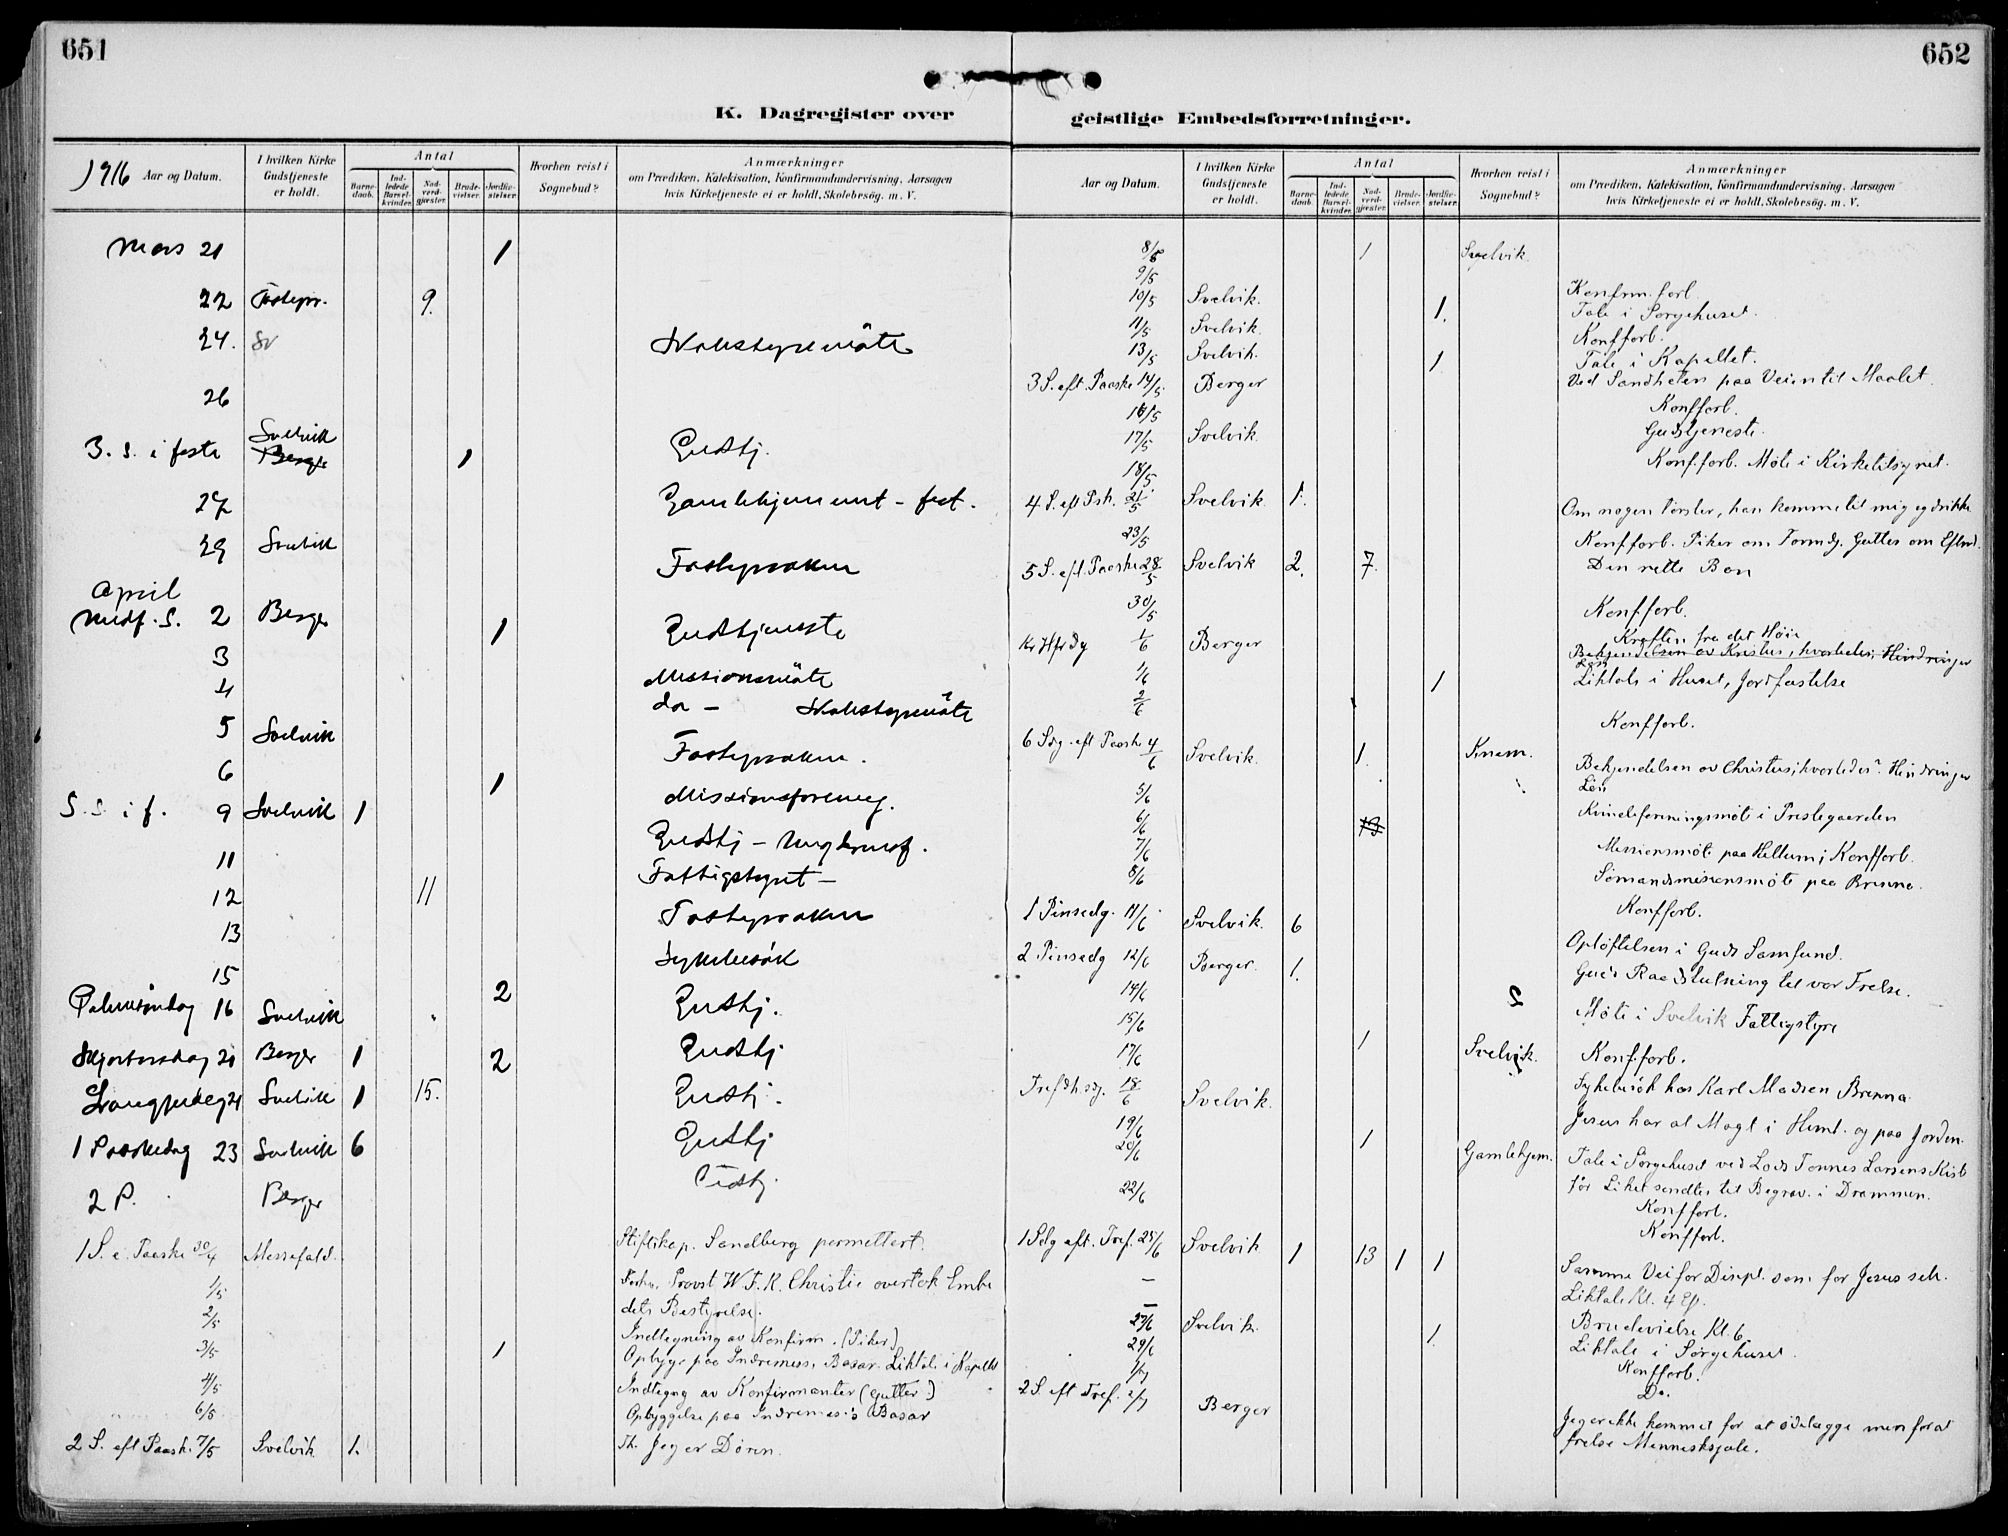 651
652
K. Dagregister over
geistlige Embedsforretninger.
1916 Aar og Datum.
I hvilken Kirke Gudstjeneste er holdt.
Antal
Barnedaab.
Indledede Barselkvinder.
Nadverdgjæster.
Brudevielser.
Jordfæstelser.
Hvorhen reist i Sognebud?
Anmærkninger
om Prædiken, Katekisation, Konfirmandundervisning, Aarsagen
hvis Kirketjeneste ei er holdt, Skolebesög. m. V.
Mars 21 1
22 Fastepr. 9.
24. Sv Skolestyremöte
26
3. S. i faste Svelvik Berger 1 Gudstj.
27 Gamlehjemmet - fest.
29 Svelvik Fastepræken
April
Midf. S. 2 Berger 1 Gudstjeneste
3 Missionsmöte
4 do - Skolestyremöte
5 Svelvik Fastepræken.
6 1 Missionsforening.
5. S. i f. 9 Svelvik 1 Gudstj - Ungdomsf.
11 Fattigstyret -
12 11 Fastepræken
13 Sykebesök
15
Palmesöndag 16 Svelvik 2 Gudstj.
Skjærtorsdag 20 Berger 1 2 Gudstj
Langfredag 21 Svelvik 1 15. Gudstj.
1 Paaskedag 23 Svelvik 6 Gudstj
2 P. Berger Gudstj.
1 S. e. Paaske 30/4 Messefald. Stiftskap. Sandberg permittert.
1/5 Forhv. Provst W. F. K. Christie overtok Embe
2/5 dets Bestyrelse.
Indtegning av Konfirm. (Piker)
3/5 1 Opbygg. paa Indremiss. Basar. Liktale i Kapellet
4/5 Indtegng av Konfirmanter (Gutter)
6/5 Opbyggelse paa Indremis's Basar
2 S. eft Paaske 7/5 Svelvik 1. Th. Jeg er Døren.
Aar og Datum.
I hvilken Kirke Gudstjeneste er holdt.
Antal
Barnedaab.
Indledede Barselkvinder.
Nadverdgjæster.
Brudevielser.
Jordfæstelser.
Hvorhen reist i Sognebud?
Anmærkninger
om Prædiken, Katekisation, Konfirmandundervisning, Aarsagen
hvis Kirketjeneste ei er holdt, Skolebesög. m. V.
8/5 1 Svelvik.
9/5 Konfrm. forb.
10/5 Svelvik. 1. Tale i Sørgehuset.
11/5 Svelvik. Konfforb.
13/5 Svelvik. 1 Tale i Kapellet.
3 S. eft. Paaske 14/5 Berger Ved Sandheten paa Veien til Maalet.
16/5 Konfforb.
17/5 Svelvik. Gudstjeneste.
18/5 Konf.forb. Möte i Kirketilsynet.
4 S. eft Psk. 21/5 Svelvik 1. Om nogen tørster, han komme til mig og drikke
23/5 Konfforb. Piker om Formdg. Gutter om Eftmd.
5 S. eft. Paaske 28/5 Svelvik 2. 7. Den rette Bøn
30/5 Konfforb.
Kr Hfrdg 1/6 Berger Kraften fra det Høie
Bekjendelsen av Kristus, hvorledes, Hindringer
Løn
1/6 1 Liktale i Huset, Jordfæstelse
2/6 Konfforb.
6 Sdg. eft Paaske 4/6 Svelvik. 1. Knem. Bekjendelsen av Christus; hvorledes? Hindringer
Løn
5/6 Kvindeforeningsmöte i Prestegaarden
6/6 13 Missionsmöte paa Hellum; Konfforb.
7/6 Sömandsmissionsmöte paa Brenna.
8/6 Konfforb.
1 Pinsedg. 11/6 Svelvik. 6 Opløftelsen i Guds Samfund.
2 Pinsedg 12/6 Berger. 1. Guds Raadslutning til vor Frelse.
14/6 2 Möte i Svelvik Fattigstyre
15/6 1 Svelvik. Konf.forb.
17/6 Sykebesök hos Karl Madsen Brenna.
Trefdh. sdg. 18/6 Svelvik. Jesus har al Magt i Himl. og paa Jorden.
19/6 1 Gamlehjem. Tale i Sørgehuset ved Lods Tønnes Larsens Kiste
20/6 før Liket sendtes til Begrav. i Drammen.
22/6 Konfforb.
Konfforb.
1 Sdg eft. Tref. 25/6 Svelvik 1 13 1 1 Samme Vei for Discpl. som for Jesus selv.
- Liktale Kl. 4 Ef.
- Brudevielse Kl. 6.
27/6 Svelvik. 1. Liktale i Sørgehuset.
29/6 Konfforb.
1/7 Do.
2 S. eft Tref. 2/7 Berger Jeg er ikke kommet for at ödelægge men for at
frelse Menneskesjæle.